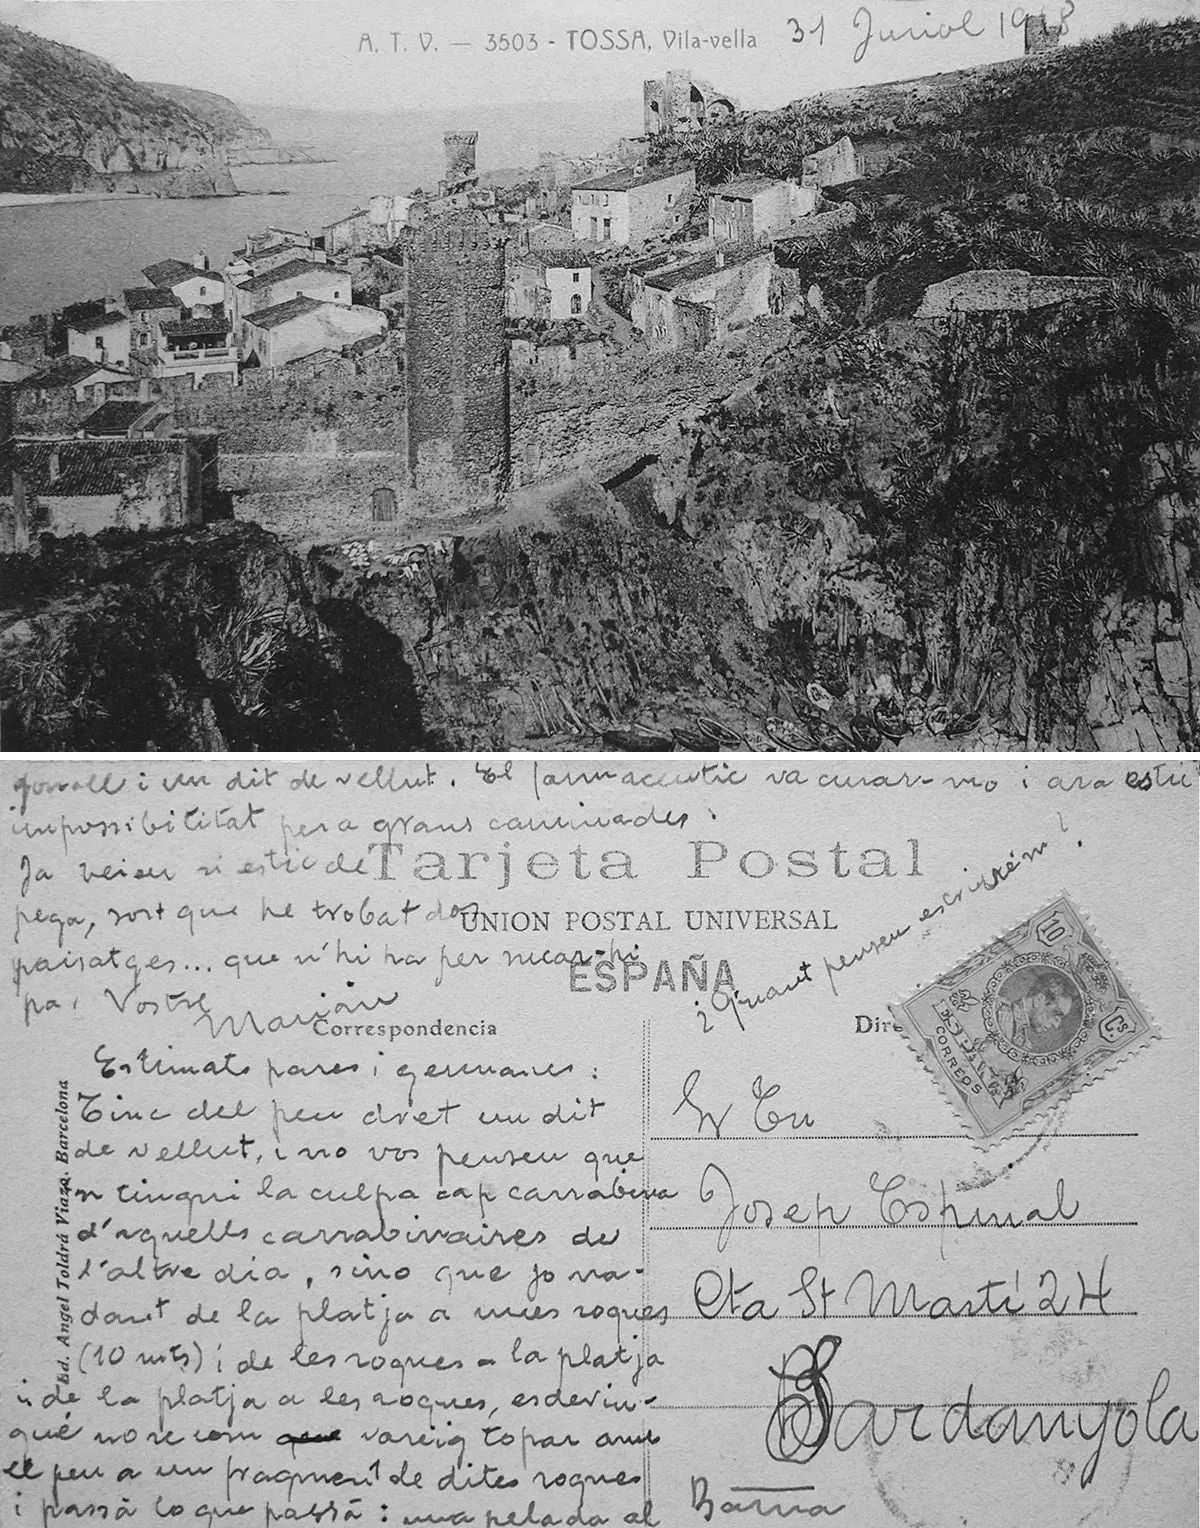 A. T. V. — 3503 - TOSSA, Vila-vella 31 Juriol 1918
i un dit de vellut. El farmaceutic va curar-mo i ara estic
impossibilitat per a grans caminades.
Ja veieu si estic de
pega, sort que he trobat dos
paisatges... que n'hi ha per sucar-hi
pa. Vostre
Marián
Tarjeta Postal
UNION POSTAL UNIVERSAL
ESPAÑA
¡ Quant penseu escriurém !
10
Cs.
ESPAÑA
CORREOS
Correspondencia
Estimats pares i germanes:
Tinc del peu dret un dit
de vellut, i no vos penseu que
n tingui la culpa cap carrabina
d'aquells carrabinaires de
l'altre dia, sino que jo na-
dant de la platja a unes roques
(10 mts) i de les roques a la platja
i de la platja a les roques, esdevin-
gué no se com vareig topar amb
el peu a un fragment de dites roques
i passà lo que passà: una pelada al
Ed. Angel Toldrá Viazo. Barcelona
Dire
Sr En
Josep Espinal
Cta St Martí 24
Bardanyola
Barna